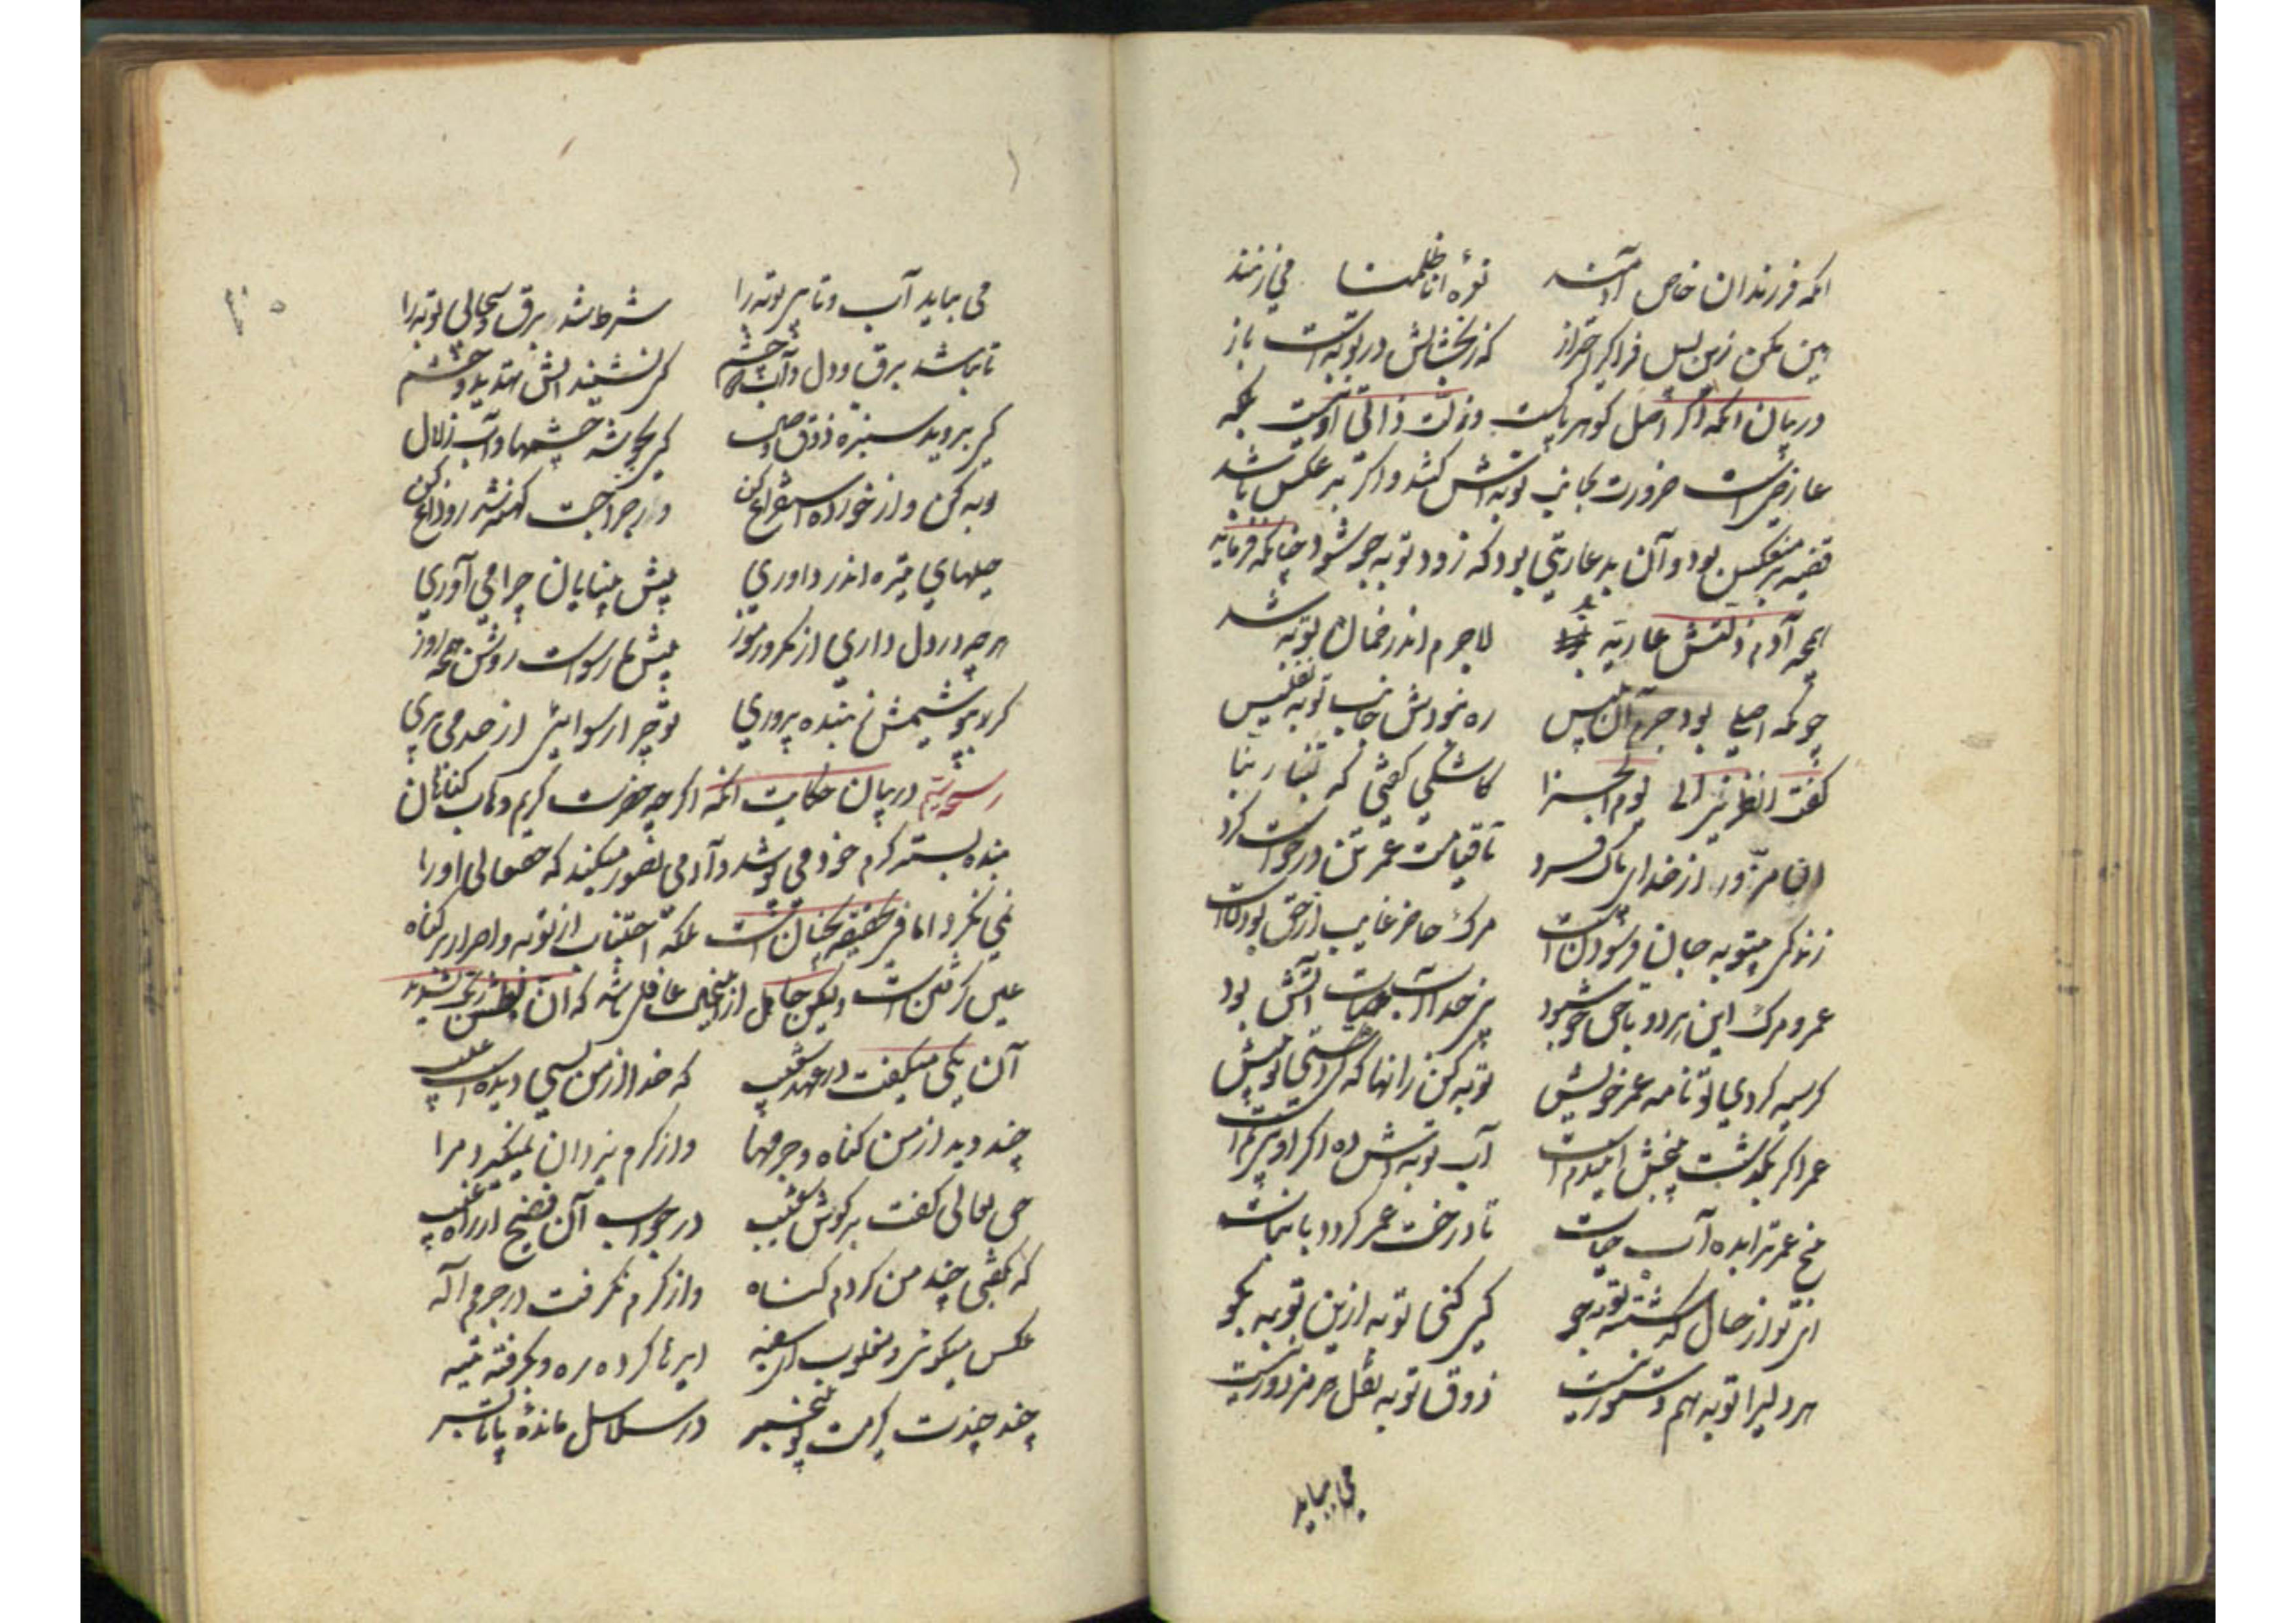 آنکه فرزندان خاص آدمند نوحهٔ انا ظلمنا می زنند
هین مکن زین پس فراگیر احتراز که ز بخشایش در توبه است باز
در بیان آنکه اگر اصل گوهر پاکست و زلت ذاتی او نیست بلکه
عارضی است ضرورت بجانب توبه اش کشد و اگر بر عکس باشد
قضیه بر عکس بود و آن بد عاریتی بود که زود توبه جو شود چنانکه فرماید
آنچه آدم زلتش عاریه بد لاجرم اندر زمان توبه شد
چونکه اصلی بود جرم آن بلیس ره نبودش جانب توبه نفیس
گفت انظرنی الی یوم الجزا کاشکی گفتی که تبنا ربنا
تا قیامت عمر تن درخواست کرد
زندگی بی توبه جان فرسودن است مرگ حاضر غایب از حق بودنست
عمر و مرگ این هر دو با حق خوش بود بی خدا آب حیات آتش بود
گر سیه کردی تو نامه عمر خویش توبه کن زانها که کردستی تو پیش
عمر اگر بگذشت بیخش این دم است آب توبه اش ده اگر او بی نم است
بیخ عمرت را بده آب حیات تا درخت عمر گردد با نبات
ای تو از حال گذشته توبه جو کی کنی توبه ازین توبه بگو
هر دلی را توبه هم دستور نیست ذوق توبه نقل هر مزدور نیست
می بباید
۲۰
می بباید آب و تابی توبه را شرط شد برق و سحابی توبه را
تا نباشد برق دل و ابر دو چشم کی نشیند آتش تهدید و خشم
کی بروید سبزه ذوق وصال کی بجوشد چشمها و آب زلال
توبه کن و از خورده استفراغ کن ور جراحت کهنه شد رو داغ کن
حیلهای تیره اندر داوری پیش بینایان چرا می آوری
هر چه در دل داری از مکر و رموز پیش ما رسواست روشن همچو روز
گر بپوشیمش ز بنده پروری تو چرا رسوایی از حد می بری
در بیان حکایت آنکه اگرچه حضرت کریم وهاب گناهان
بنده بستر کرم خود می پوشد و آدمی تصور میکند که حق تعالی او را
نمی گیرد اما فی الحقیقه نچنان است بلکه اجتناب از توبه و اصرار بر گناه
عین گرفتن است ولیکن جاهل ازین غافل باشد که ان بطش ربک لشدید
آن یکی میگفت در عهد شعیب که خدا از من بسی دیده است عیب
چند دید از من گناه و جرمها وز کرم یزدان نمیگیرد مرا
حق تعالی گفت بر گوش شعیب در جواب آن فصیح از راه غیب
که بگفتی چند من کردم گناه وز کرم نگرفت در جرمم اله
عکس میگوئی و مقلوب ای سفیه ای رها کرده ره و بگرفته تیه
چند چندت گیرمت تو بیخبر در سلاسل مانده پا تا بسر